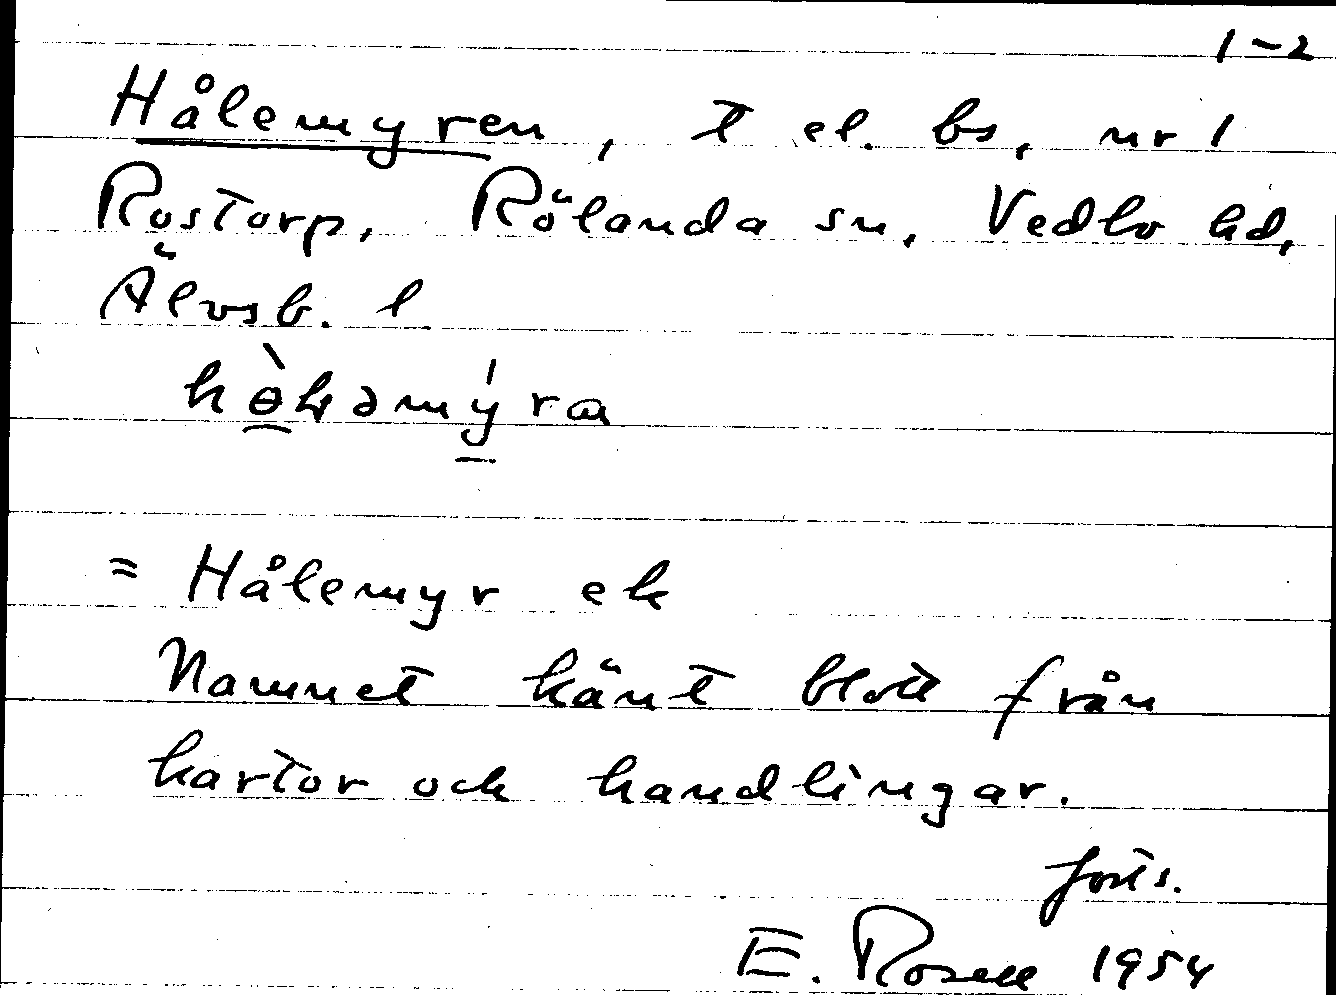 1-2
Hålemyren, t el. bs, nr 1
Rostorp, Rölanda sn, Vedbo hd,
Älvsb. l
= Hålemyr ek
Namnet känt blott från
kartor och handlingar.
forts.
E. Rosell 1954